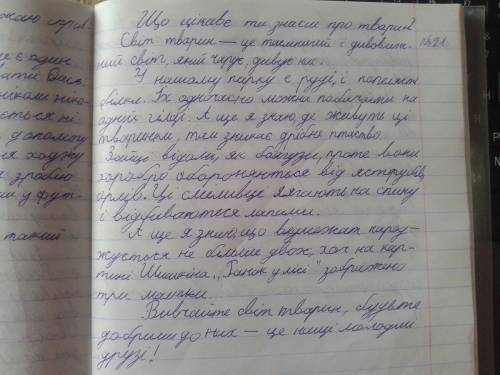 Що цікаве ти знаєш про тварин?
Світ тварин — це таємничий і дивовиж- №21.
ний світ, який чарує, дивує нас.
У нашому парку є руді, і попелясті
білки. Їх одночасно можна побачити на
одній гілці. А ще я знаю, де живуть ці
тваринки, там зникає дрібне птаство.
Зайці відомі, як боягузи, проте вони
хоробро обороняються від яструбів,
орлів. Ці сміливці лягають на спину
і відбиваються лапами.
А ще я знаю, що ведмежат народ-
жується не більше двох, хоч на кар-
тині Шишкіна "Ранок у лісі" зображено
три малюки.
Вивчайте світ тварин, будьте
добрими до них — це наші молодші
друзі!
є один
ніколи ніко-
ється ні
допомогу
ся ходжу
я зравлю
и у фут-
такий